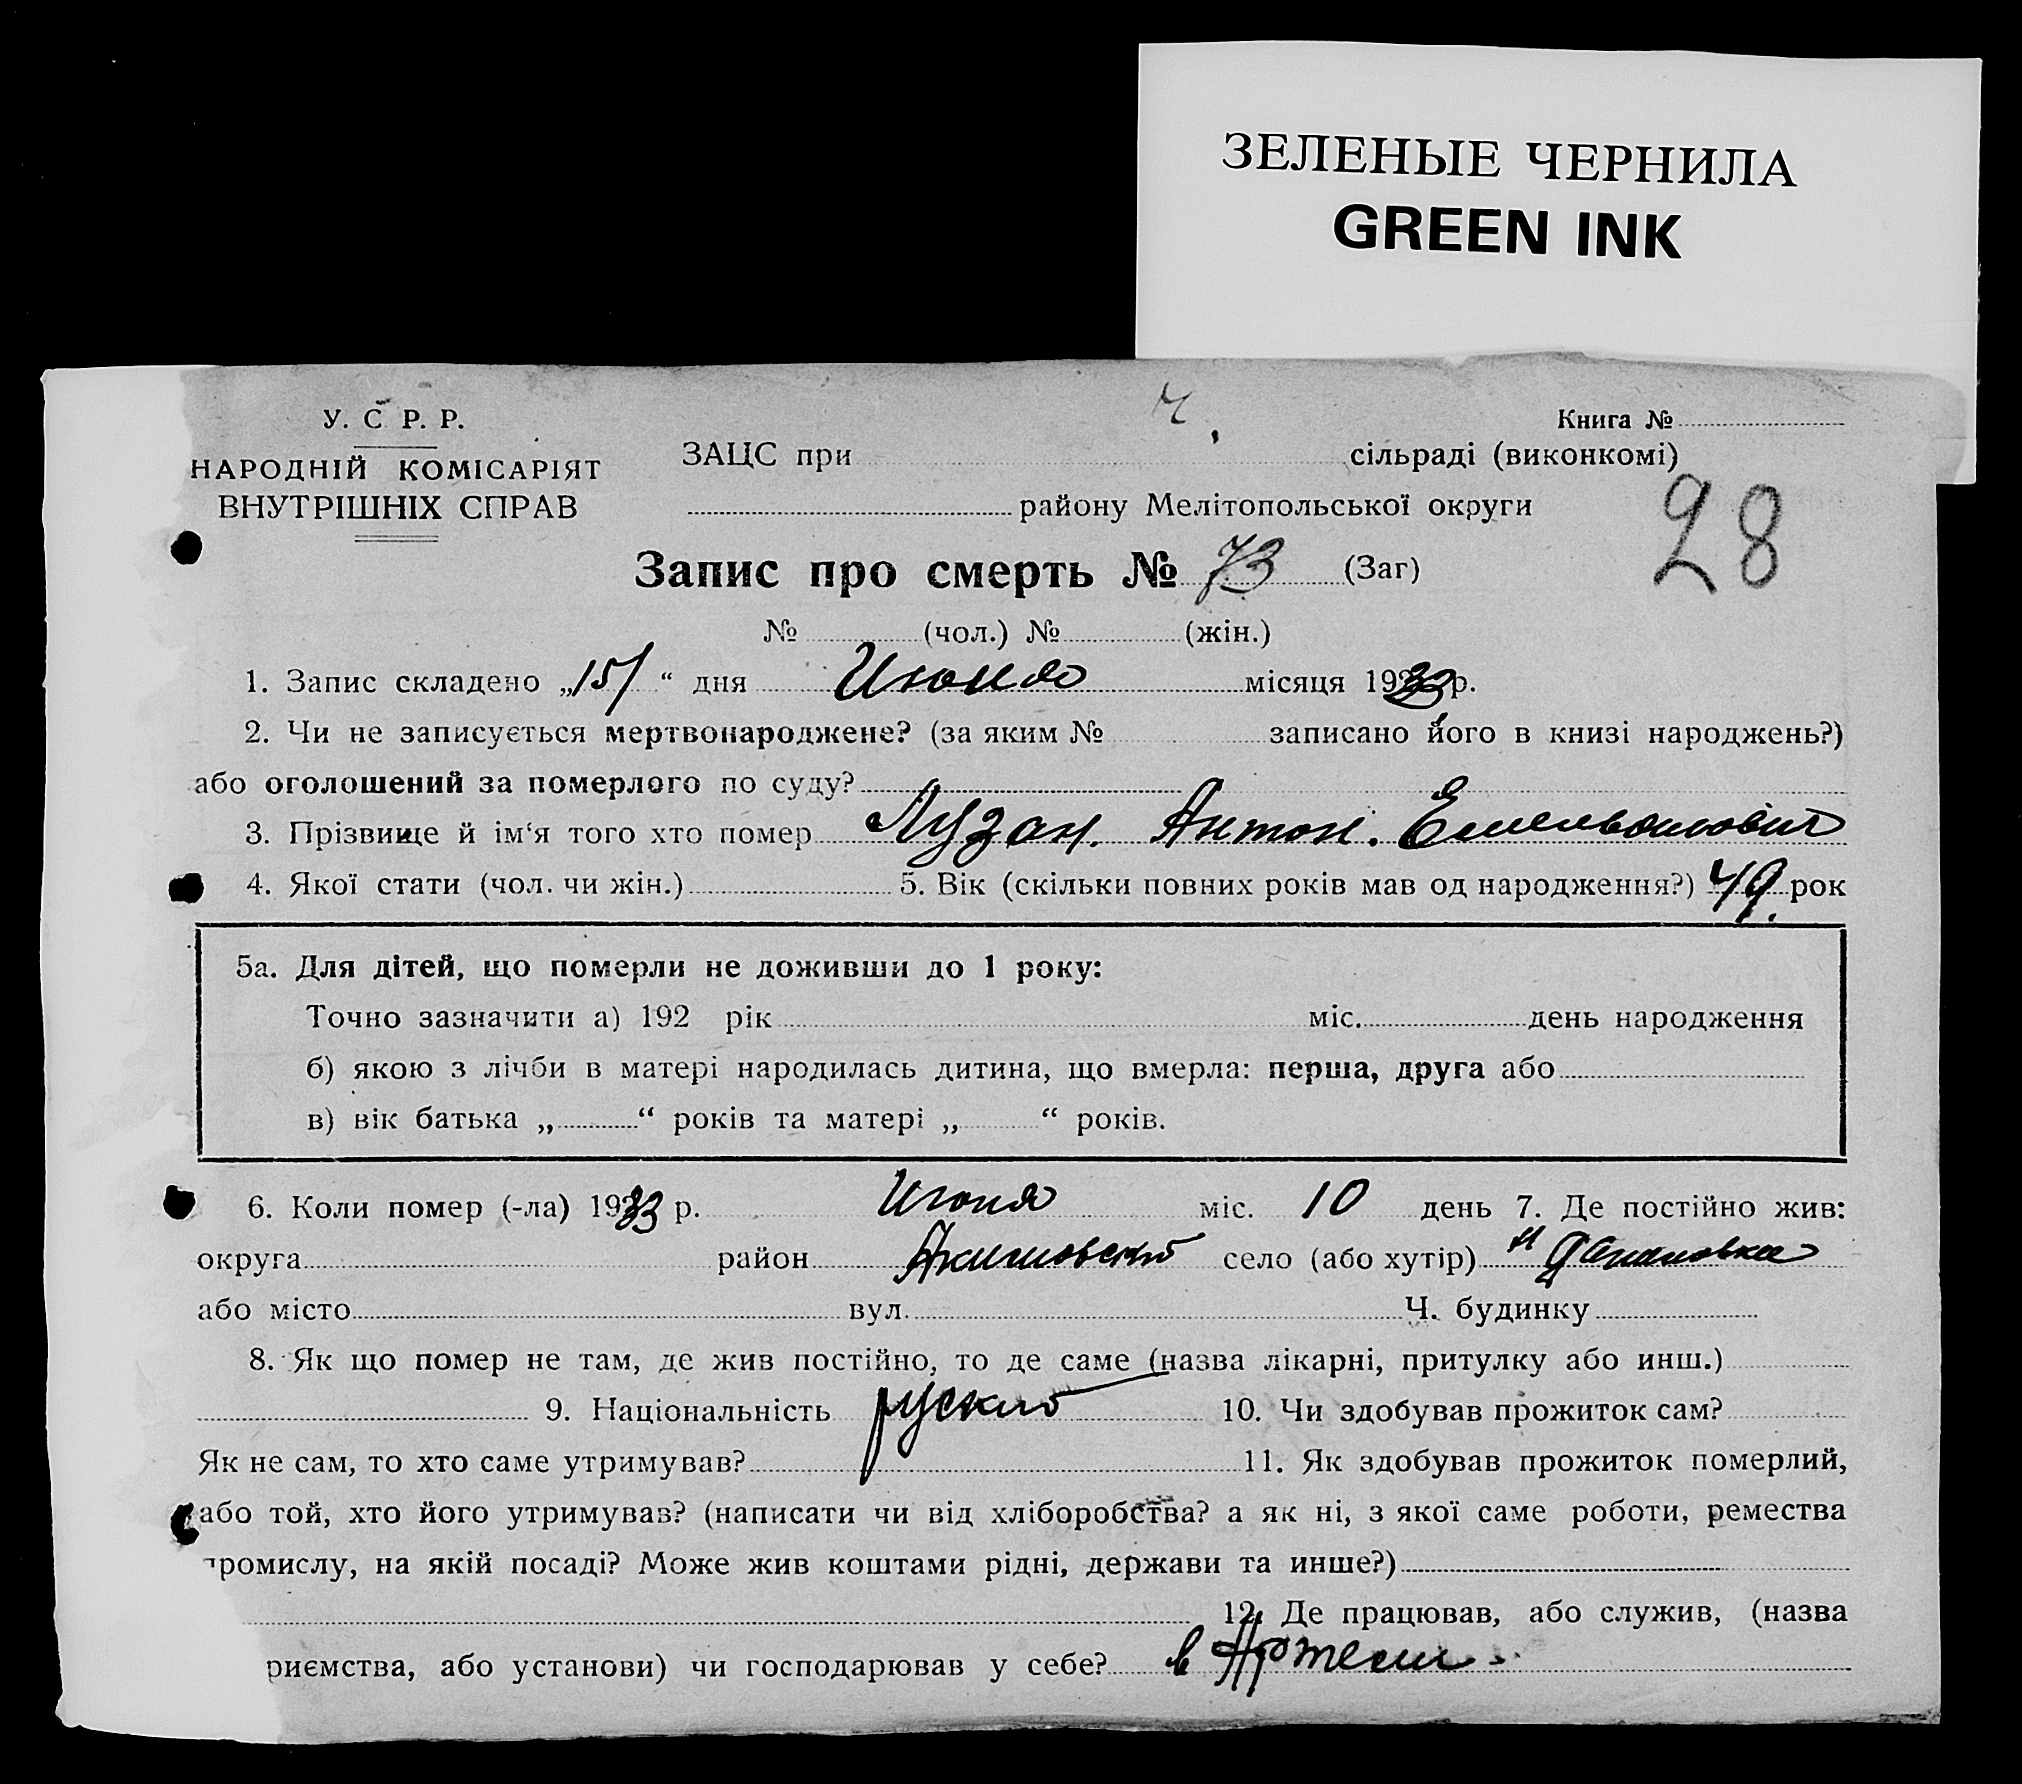 ЗЕЛЕНЫЕ ЧЕРНИЛА
GREEN INK
У. С. Р. Р.
НАРОДНІЙ КОМІСАРІЯТ
ВНУТРІШНІХ СПРАВ
Книга №
ЗАЦС при сільраді (виконкомі)
району Мелітопольської округи
28
Запис про смерть № 73 (Заг)
№ (чол.) № (жін.)
1. Запис складено „15“ дня Июня місяця 1933 р.
2. Чи не записується мертвонароджене? (за яким № записано його в книзі народжень?)
або оголошений за померлого по суду?
3. Прізвище й ім‘я того хто помер Лузан. Антон. Емельянович
4. Якої стати (чол. чи жін.) 5. Вік (скільки повних років мав од народження?) 49 рок
5а. Для дітей, що померли не доживши до 1 року:
Точно зазначити а) 192 рік міс. день народження
б) якою з лічби в матері народилась дитина, що вмерла: перша, друга або
в) вік батька „ “ років та матері „ “ років.
6. Коли помер (-ла) 1933 р. Июня міс. 10 день 7. Де постійно жив:
округа район Акимовский село (або хутір)
або місто вул. Ч. будинку
8. Як що помер не там, де жив постійно, то де саме (назва лікарні, притулку або инш.)
9. Національність руский 10. Чи здобував прожиток сам?
Як не сам, то хто саме утримував? 11. Як здобував прожиток померлий,
або той, хто його утримував? (написати чи від хліборобства? а як ні, з якої саме роботи, ремества
промислу, на якій посаді? Може жив коштами рідні, держави та инше?)
12. Де працював, або служив, (назва
риємства, або установи) чи господарював у себе? в Артели